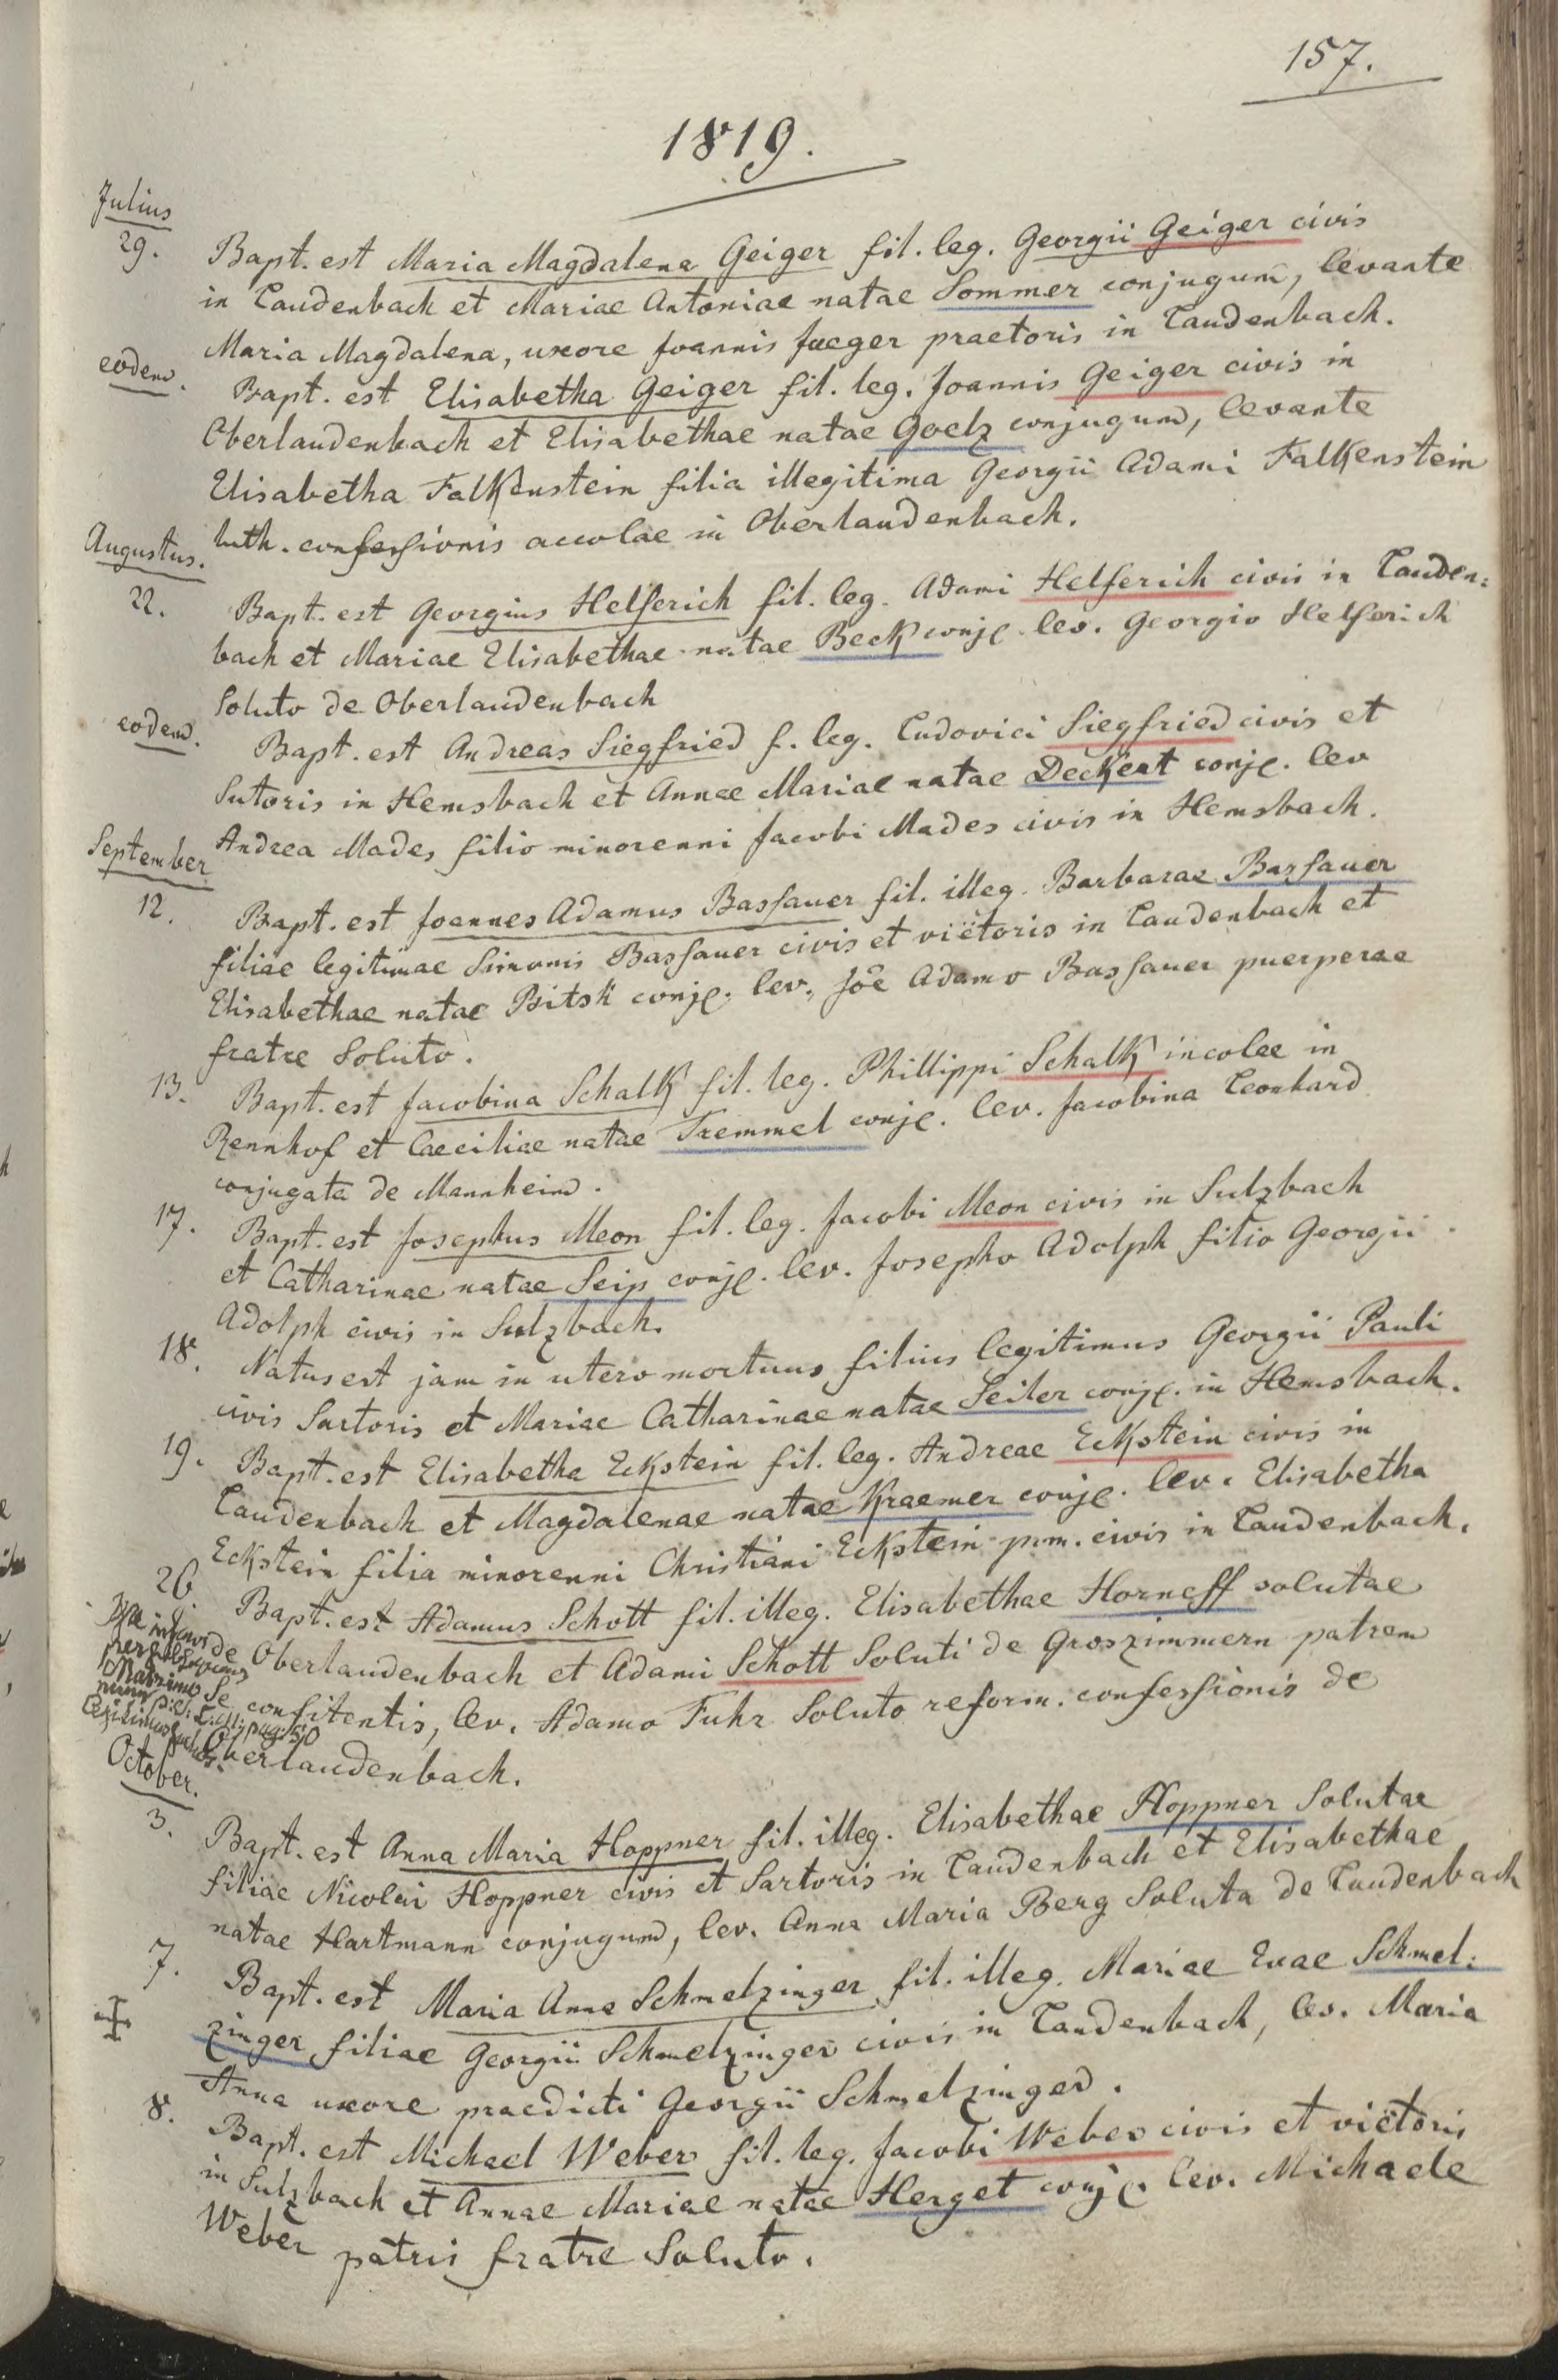 157.
1819.
Julius
29. Bapt. est Maria Magdalena Geiger fil. leg. Georgii Geiger civis
in Laudenbach et Mariae Antoniae natae Sommer conjugum, levante
Maria Magdalena, uxore Joannis Jaeger praetoris in Laudenbach.
eodem. Bapt. est Elisabetha Geiger fil. leg. Joannis Geiger civis in
Oberlaudenbach et Elisabethae natae Goelz conjugum, levante
Elisabetha Falkenstein filia illegitima Georgii Adami Falkenstein
luth. confessionis accolae in Oberlaudenbach.
Augustus.
22. Bapt. est Georgius Helferich fil. leg. Adami Helferich civis in Lauden:
bach et Mariae Elisabethae natae Beck conjg. lev. Georgio Helferich
Soluto de Oberlaudenbach
eodem. Bapt. est Andreas Siegfried f. leg. Ludovici Siegfried civis et
Sutoris in Hemsbach et Annae Mariae natae Deckert conjg. lev
Andrea Mades filio minorenni Jacobi Mades civis in Hemsbach.
September
12. Bapt. est Joannes Adamus Bassauer fil. illeg. Barbarae Bassauer
filiae legitimae Simonis Bassauer civis et viëtoris in Laudenbach et
Elisabethae natae Bitsk conjg. lev. Joë Adamo Bassauer puerperae
fratre Soluto.
13. Bapt. est Jacobina Schalk fil. leg. Phillippi Schalk incolae in
Rennhof et Caeciliae natae Tremmel conjg. lev. Jacobina Leonhard
conjugata de Mannheim.
17. Bapt. est Josephus Meon fil. leg. Jacobi Meon civis in Sulzbach
et Catharinae natae Seip conjg. lev. Josepho Adolph filio Georgii
Adolph civis in Sulzbach.
18. Natus est jam in utero mortuus filius legitimus Georgii Pauli
civis Sartoris et Mariae Catharinae natae Seiler conjg. in Hemsbach.
19. Bapt. est Elisabetha Eckstein fil. leg. Andreae Eckstein civis in
Laudenbach et Magdalenae natae Kraemer conjg. lev. Elisabetha
Eckstein filia minorenni Christiani Eckstein pm. civis in Laudenbach.
26. Bapt. est Adamus Schott fil. illeg. Elisabethae Horneff solutae
de Oberlaudenbach et Adami Schott Soluti de Groszimmern patrem
Se confitentis, lev. Adamo Fuhr Soluto reform. confessionis de
Oberlaudenbach.
October.
3. Bapt. est Anna Maria Hoppner fil. illeg. Elisabethae Hoppner Solutae
filiae Nicolai Hoppner civis et Sartoris in Laudenbach et Elisabethae
natae Hartmann conjugum, lev. Anna Maria Berg Soluta de Laudenbach
7. Bapt. est Maria Anna Schmelzinger fil. illeg. Mariae Evae Schmel:
zinger filiae Georgii Schmelzinger civis in Laudenbach, lev. Maria
Anna uxore praedicti Georgii Schmelzinger.
8. Bapt. est Michael Weber fil. leg. Jacobi Weber civis et viëtoris
in Sulzbach et Annae Mariae natae Herget conjg. lev. Michaele
Weber patris fratre Soluto.